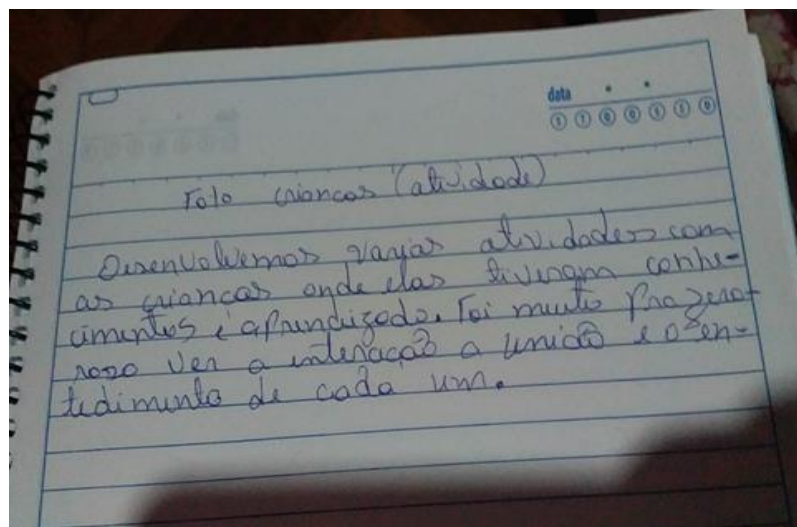 data
S T Q Q S S D
Foto crianças (atividade)
Desenvolvemos varias atividades com
as crianças onde elas tiveram conhe-
cimentos e aprendizado. Foi muito prazero-
roso ver a interação a união e o en-
tedimento de cada um.